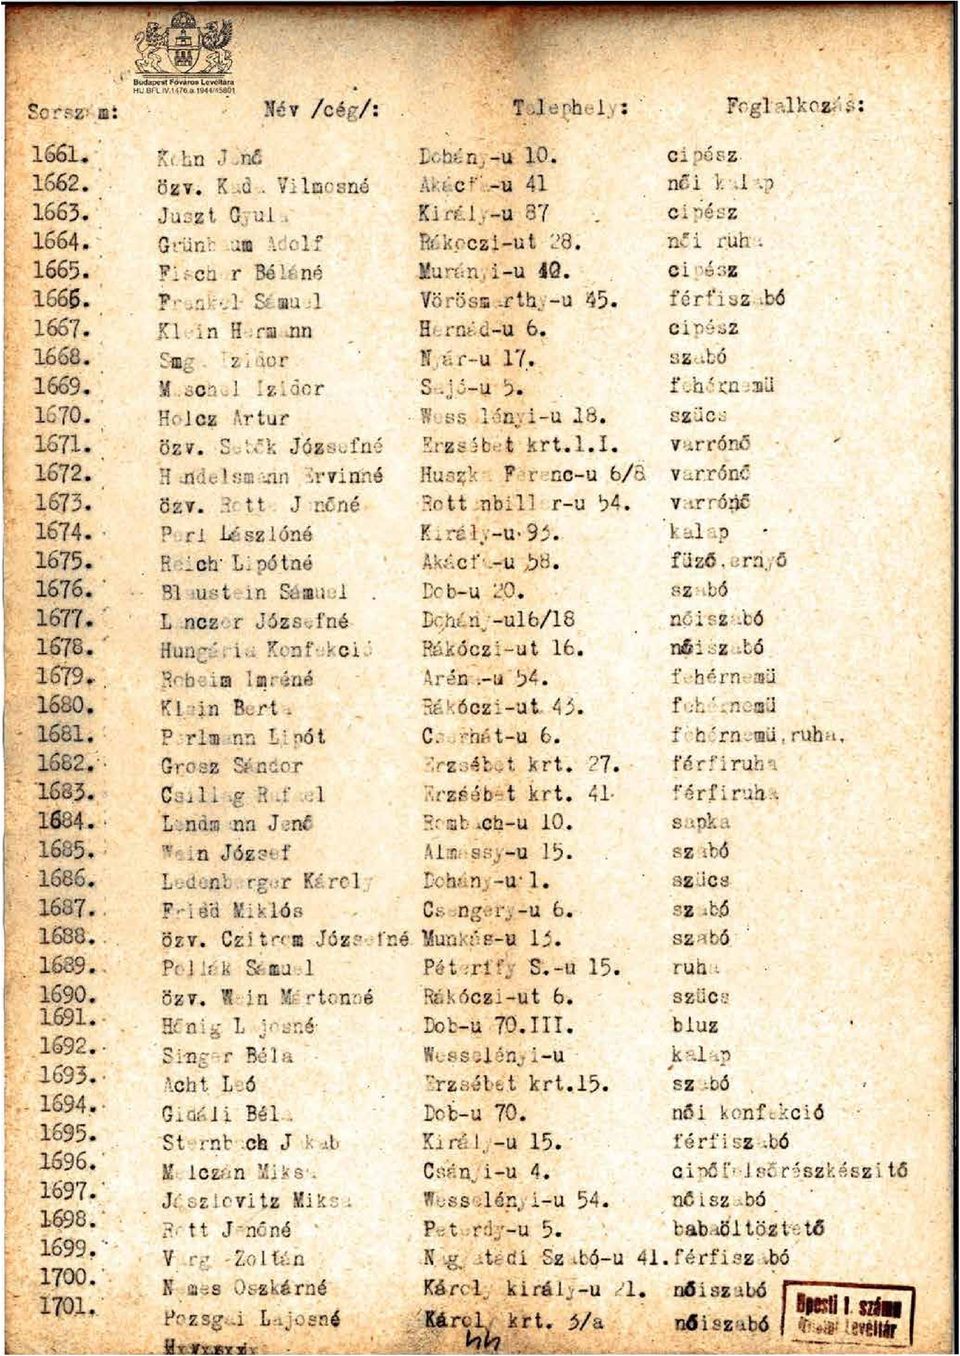 Budapest Főváros Levéltára
HU BFL IV.1476.a 1944/45801
Sorszám: Név /cég/: Telephely: Foglalkozás:
1661. Kohn Jenő Dohány-u 10. cipész
1662. özv. Vilmosné Akácfa-u 41 női kalap
1663. Juszt Gyula Király-u 87 cipész
1664. Grünbaum Adolf Rákoczi-ut 28. női ruha
1665. Fischer Béláné Murányi-u 40. cipész
1666. Frenkel Sámuel Vörösmarthy-u 45. férfiszabó
1667. Klein Hermann Hernád-u 6. cipész
1668. Izidor Nyár-u 17. szabó
1669. Izidor Sajó-u 5. fehérnemü
1670. Holcz Artur Wesselényi-u 18. szücs
1671. özv. Józsefné Erzsébet krt.1.I. varrónő
1672. Handelsmann Ervinné Huszka Ferenc-u 6/8 varrónő
1673. özv. Rott Jenőné Rottenbiller-u 54. varrónő
1674. Perl Lászlóné Király-u 93. kalap
1675. Reich Lipótné Akácfa-u 58. füző,ernyő
1676. Blaustein Sámuel Dob-u 20. szabó
1677. Lanczer Józsefné Dohány-u16/18 nőiszabó
1678. Hungária Konfekció Rákóczi-ut 16. nőiszabó
1679. Roheim Imréné Aréna-u 54. fehérnemü
1680. Klein Berta Rákóczi-ut 43. fehérnemü
1681. Perlmann Lipót Cserhát-u 6. fehérnemü,ruha,
1682. Grosz Sándor Erzsébet krt. 27. férfiruha
1683. Csillag Rafael Erzsébet krt. 41. férfiruha
1684. Landmann Jenő Rombach-u 10. sapka
1685. Wein József Almássy-u 15. szabó
1686. Ledenberger Károly Dohány-u 1. szücs
1687. Fried Miklós Csengery-u 6. szabó
1688. özv. Czitrom Józsefné Munkás-u 13. szabó
1689. Pollák Sámuel Péterffy S.-u 15. ruha
1690. özv. Wein Mártonné Rákóczi-ut 6. szücs
1691. Hőnig Lajosné Dob-u 70.III. bluz
1692. Singer Béla Wesselényi-u kalap
1693. Acht Leó Erzsébet krt.15. szabó
1694. Gidáli Béla Dob-u 70. női konfekció
1695. Sternbach Jakab Király-u 15. férfiszabó
1696. Malczán Miksa Csányi-u 4. cipőfelsőrészkészitő
1697. Jószlovitz Miksa Wesselényi-u 54. nőiszabó
1698. Rott Jenőné Peterdy-u 5. babaöltöztető
1699. Varga Zoltán Nagyatádi Szabó-u 41.férfiszabó
1700. Nemes Oszkárné Károly király-u 21. nőiszabó
1701. Pozsgai Lajosné Károly krt. 3/a nőiszabó
44